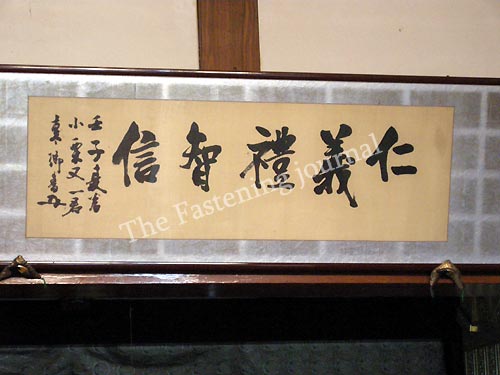 仁義禮智信
壬子
小栗又一君
The Fastening journal